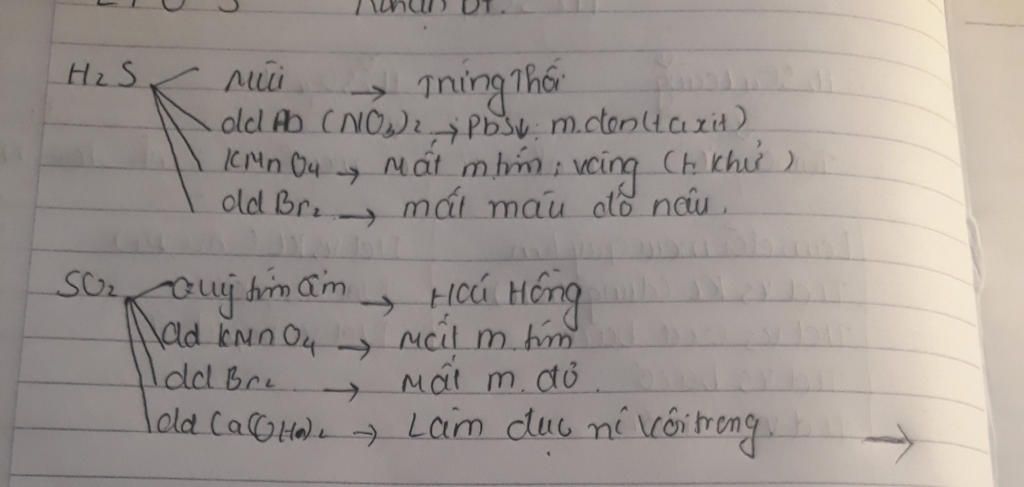 Nhận Dt.
H2S Mùi → Trứng Thối
dd Pb (NO3)2 → PbS↓ m.đen (t axit)
KMnO4 → Mất m.tím, vàng (t. khử)
dd Br2 → mất màu đỏ nâu.
SO2 Quỳ tím ẩm → Hoá Hồng
dd KMnO4 → Mất m.tím
dd Br2 → Mất m.đỏ.
dd Ca(OH)2 → Làm đục nc vôi trong.
→